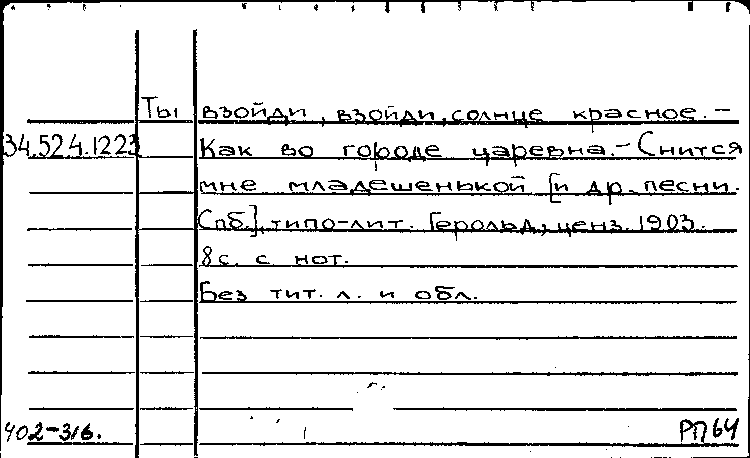 Ты взойди, взойди, солнце красное. –
34.524.1223 Как во городе царевна. – Снится
мне младешенькой [и др. песни.
Спб.], типо-лит. Герольд, ценз. 1903.
8 с. с нот.
Без тит. л. и обл.
402-316. РП64